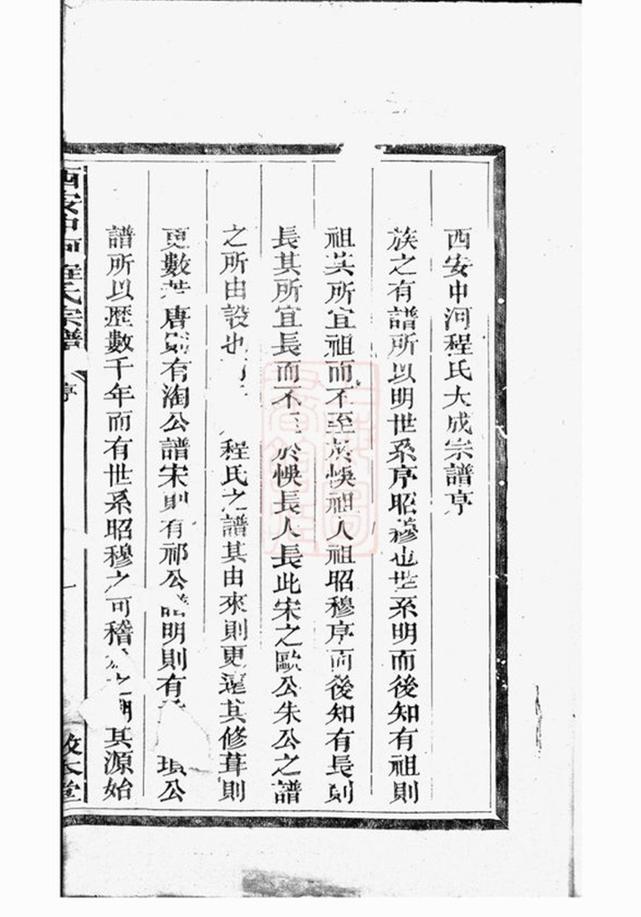 西安中河程氏大成宗譜序
族之有譜所以明世系序昭穆也世系明而後知有祖則
祖其所宜祖而不至於悞祖人祖昭穆序而後知有長則
長其所宜長而不 於悞長人長此宋之歐公朱公之譜
之所由設也 程氏之譜其由來則更遠其修葺則
更數 唐則有淘公譜宋則有祁公譜明則有 公
譜所以歷數千年而有世系昭穆之可稽 其源始
西安中河程氏宗譜 序 一 敦本堂